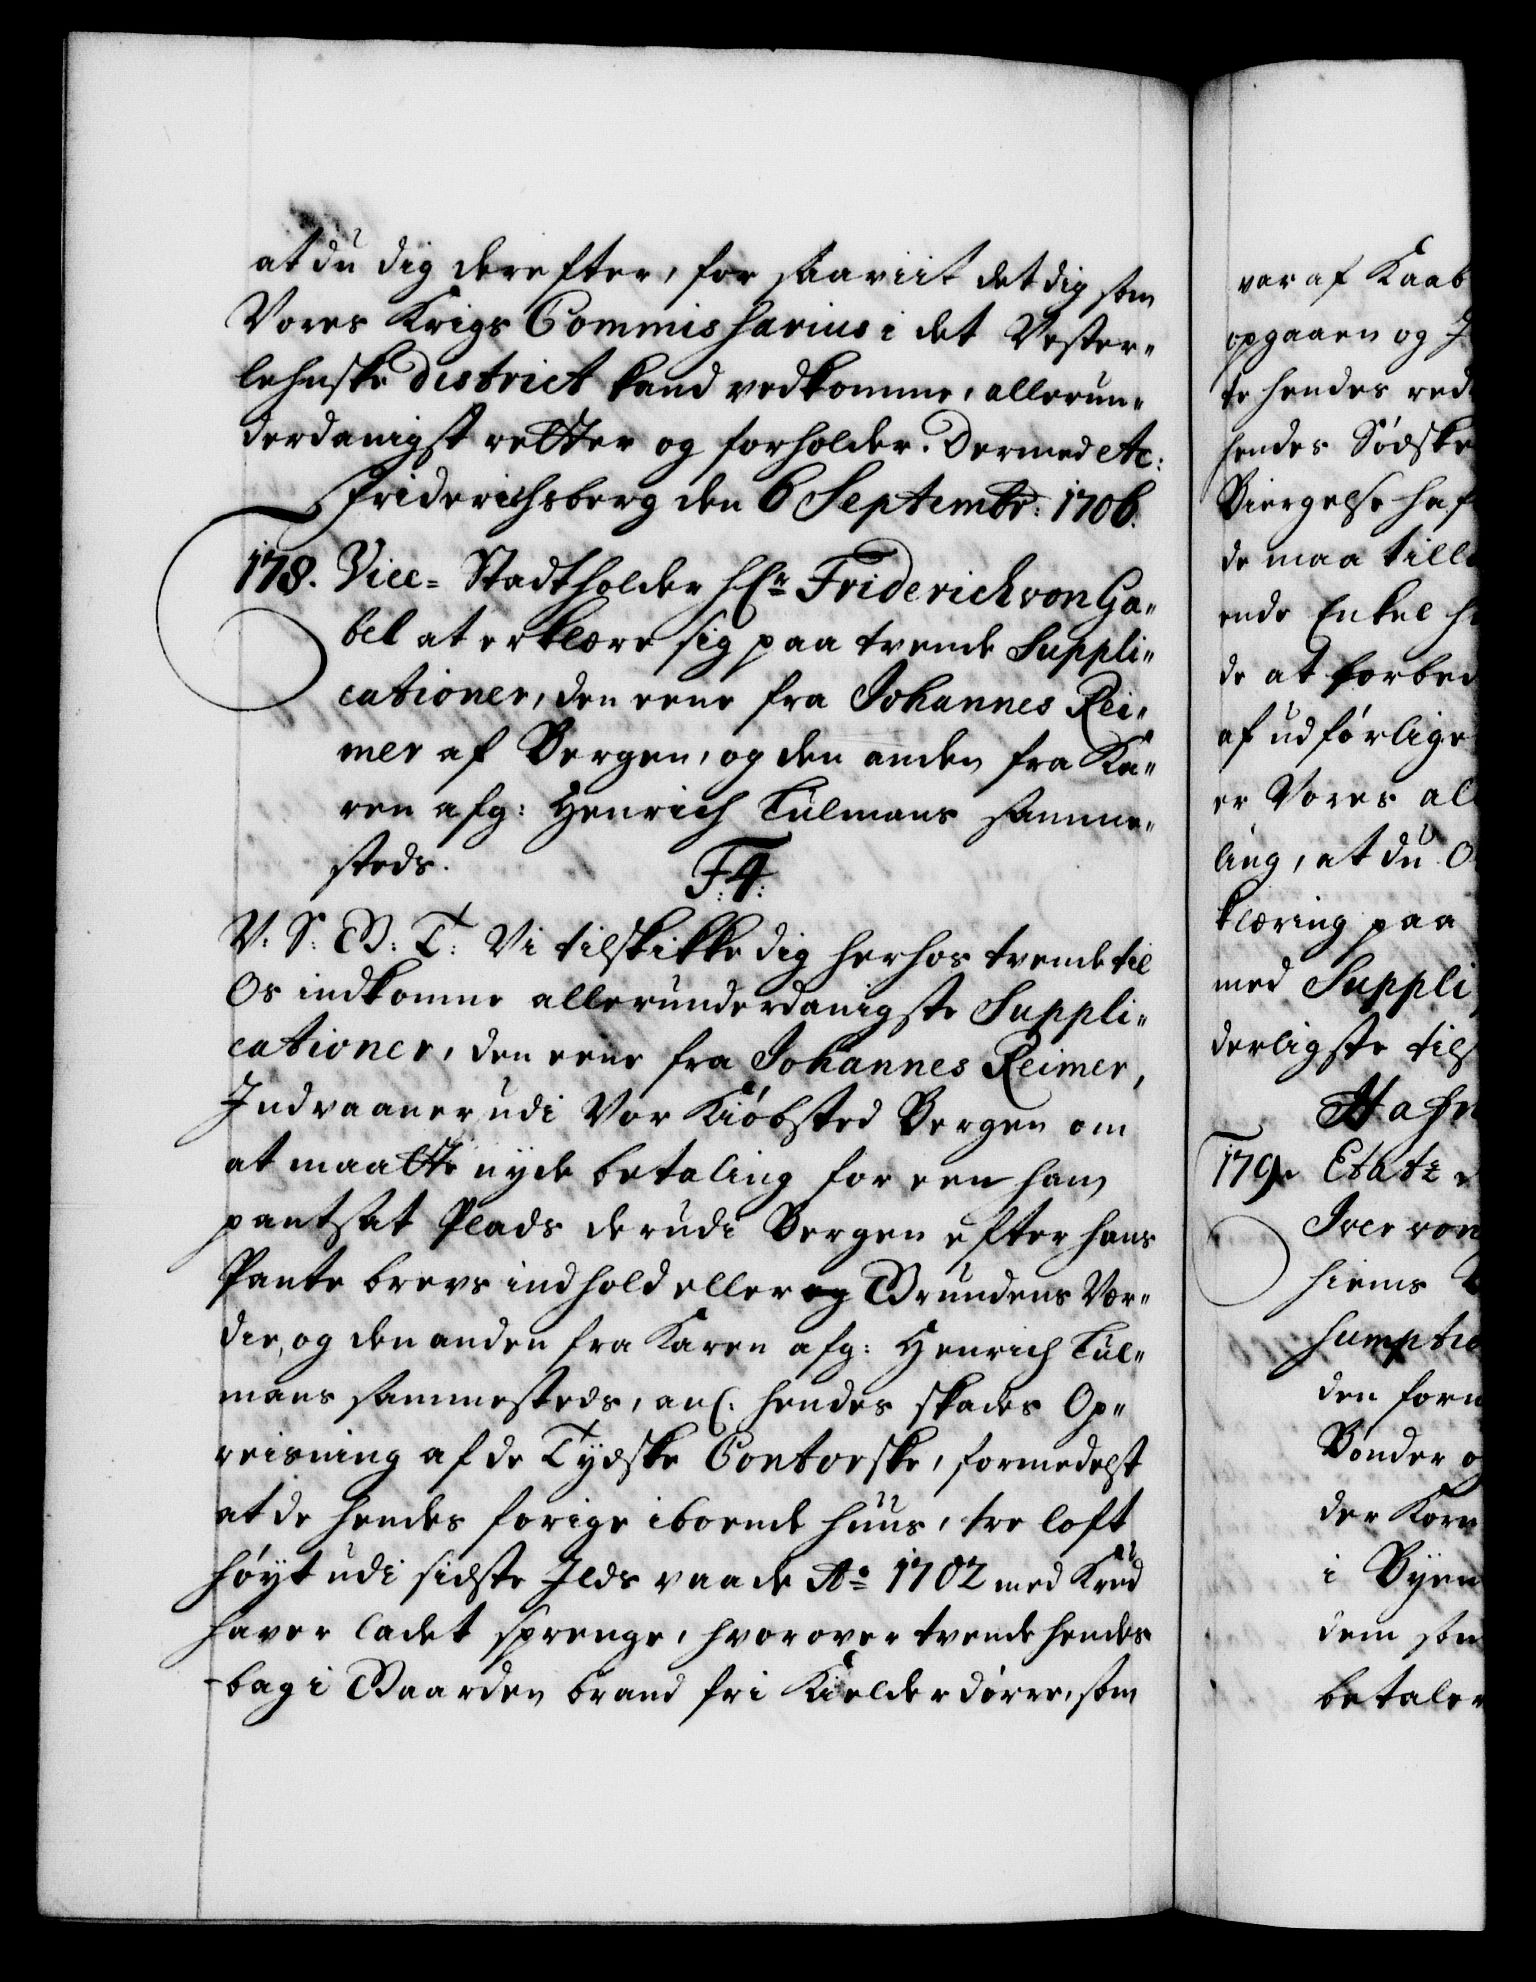 at du dig derefter, for saaviit det dig som
Vores Krigs Commissarius i det Vester„
lehnske district kand vedkomme, allerun„
derdanigst retter og forholder. Dermed etc:
Friderichsberg den 6 Septembr: 1706.
178. Vice= Stadtholder Hr Friderich von Ga„
bel at erklære sig paa tvende Suppli„
cationer, den eene fra Johannes Rei„
mer af Bergen, og den anden fra Ka„
ren afg: Henrich Tülmans samme„
steds.
F: 4:
V: S: G: T: Vi tilskikke dig herhos tvende til
Os indkomne allerunderdanigste Suppli„
cationer, den eene fra Johannes Reimer,
Indvaaner udi Vor Kiøbsted Bergen om
at maatte nyde betaling for een ham
pantsat Plads derudi Bergen efter hans
Pante brevs indhold eller og Grundens Vær„
die, og den anden fra Karen afg: Henrich Tül„
mans sammesteds, anl. hendes skades Op„
reisning af de Tydske Contorske, formedelst
at de hendes forige iboende huus, tre loft
høyt udi sidste Ilds vaade Ao 1702 med Krud
haver ladet sprenge, hvorover tvende hendes
bag i Gaarden brand fri Kielder dørre, som
var af Kaab
opgaaen og
te hendes red
hendes Sødske
Biergelse haf
de maa till
ende Enkel
de at forbed
af udførlige
er Vores al
ling, at du O
klæring paa
med Suppli
derligste tils
Hafn
179. Etatz
Iver von
hiems
sumptio
den form
Bønder o
der Korn
i Byen
dem som
betaler